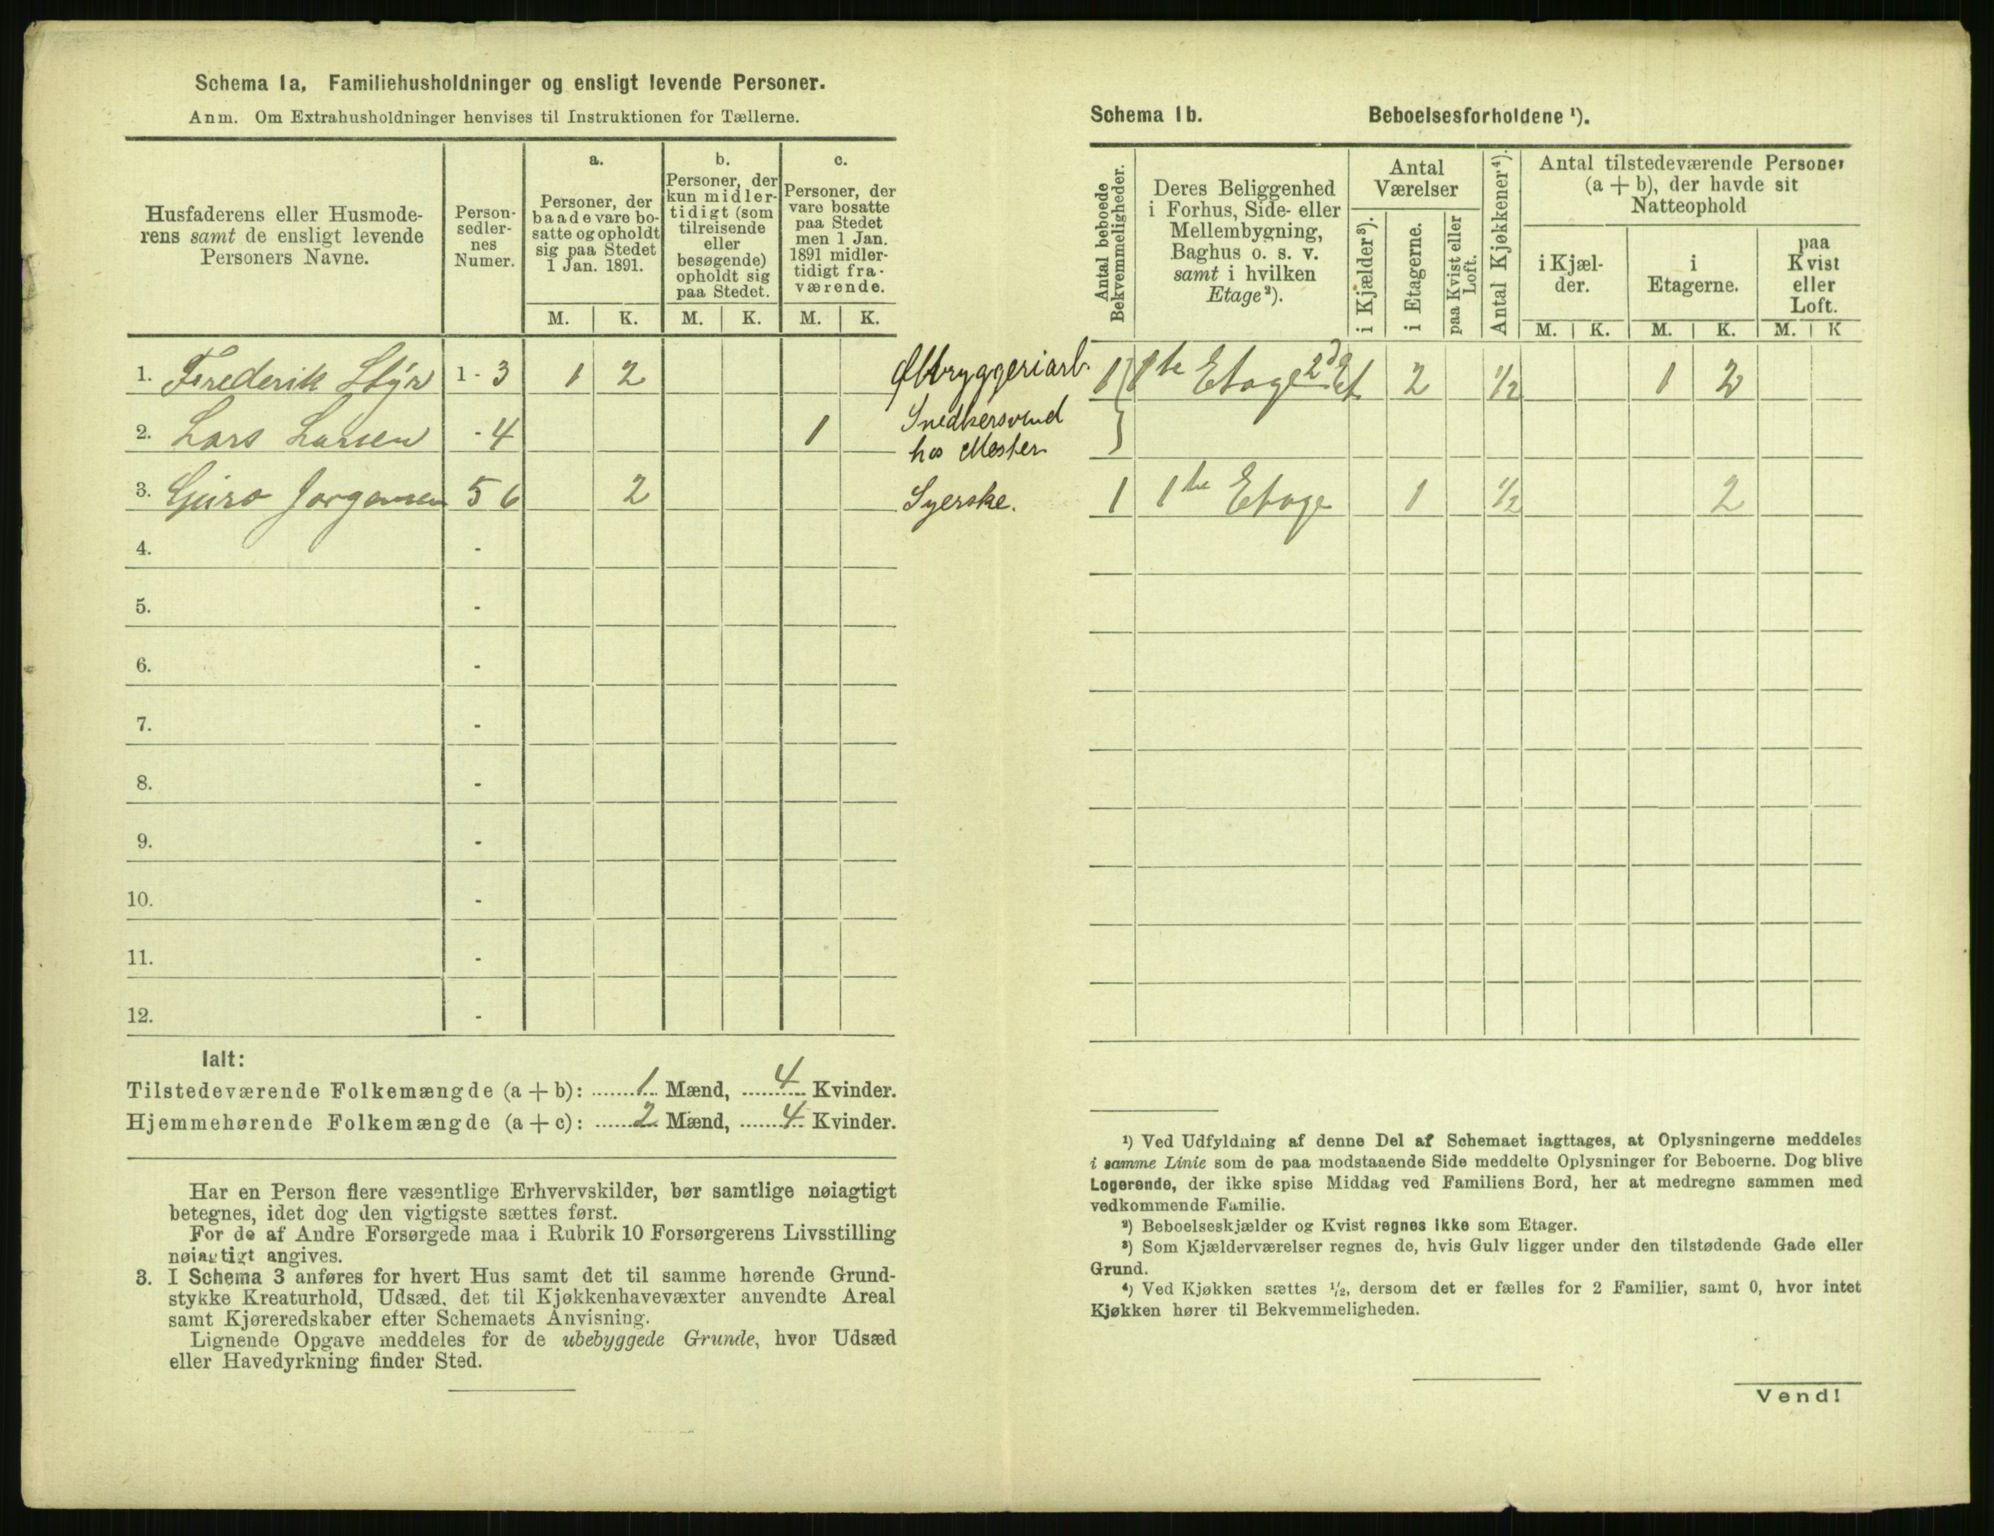 Schema 1a. Familiehusholdninger og ensligt levende Personer.
Anm. Om Extrahusholdninger henvises til Instruktionen for Tællerne.
Husfaderens eller Husmode-
rens samt de ensligt levende
Personers Navne.
Person-
sedler-
nes
Numer.
a.
Personer, der
baade vare bo-
satte og opholdt
sig paa Stedet
1 Jan. 1891.
b.
Personer, der
kun midler-
tidigt (som
tilreisende
eller
besøgende)
opholdt sig
paa Stedet.
c.
Personer, der
vare bosatte
paa Stedet
men 1 Jan.
1891 midler-
tidigt fra-
værende.
M. K. M. K. M. K.
1. Frederik Styr 1 - 3 1 2 Ølbryggeriarb.
2. Lars Larsen - 4 1 Snedkersvend
hos Mester
3. Guro Jørgensen 5 6 2 Syerske.
4. -
5. -
6. -
7. -
8. -
9. -
10. -
11. -
12. -
Ialt:
Tilstedeværende Folkemængde (a + b): 1 Mænd, 4 Kvinder.
Hjemmehørende Folkemængde (a + c): 2 Mænd, 4 Kvinder.
Har en Person flere væsentlige Erhvervskilder, bør samtlige nøiagtigt
betegnes, idet dog den vigtigste sættes først.
For de af Andre Forsørgede maa i Rubrik 10 Forsørgerens Livsstilling
nøiagtigt angives.
3. I Schema 3 anføres for hvert Hus samt det til samme hørende Grund-
stykke Kreaturhold, Udsæd, det til Kjøkkenhavevæxter anvendte Areal
samt Kjøreredskaber efter Schemaets Anvisning.
Lignende Opgave meddeles for de ubebyggede Grunde, hvor Udsæd
eller Havedyrkning finder Sted.
Schema 1b. Beboelsesforholdene ¹).
Antal beboede
Bekvemmeligheder.
Deres Beliggenhed
i Forhus, Side- eller
Mellembygning,
Baghus o. s. v.
samt i hvilken
Etage²).
Antal
Værelser
i Kjælder³).
i Etagerne.
paa Kvist eller
Loft.
Antal Kjøkkener⁴).
Antal tilstedeværende Personer
(a + b), der havde sit
Natteophold
i Kjæl-
der.
i
Etagerne.
paa
Kvist
eller
Loft.
M. K. M. K. M. K
1 1te Etage 2d Et 2 1/2 1 2
1 1te Etage 1 1/2 2
¹) Ved Udfyldning af denne Del af Schemaet iagttages, at Oplysningerne meddeles
i samme Linie som de paa modstaaende Side meddelte Oplysninger for Beboerne. Dog blive
Logerende, der ikke spise Middag ved Familiens Bord, her at medregne sammen med
vedkommende Familie.
²) Beboelseskjælder og Kvist regnes ikke som Etager.
³) Som Kjælderværelser regnes de, hvis Gulv ligger under den tilstødende Gade eller
Grund.
⁴) Ved Kjøkken sættes 1/2, dersom det er fælles for 2 Familier, samt 0, hvor intet
Kjøkken hører til Bekvemmeligheden.
Vend!